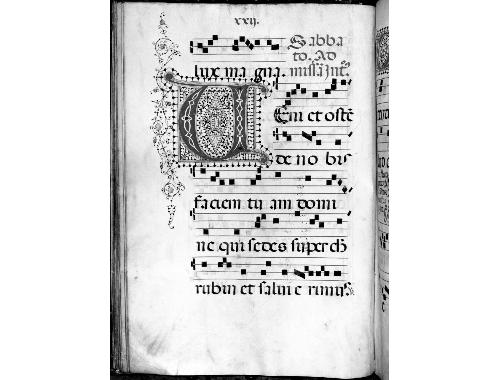 xxij.
Sabba
to. Ad
lux ma gna. missā Int̄.
VEni et ostē
de no bis
faciem tu am domi
ne qui sedes super ch
rubin et salui e rimus